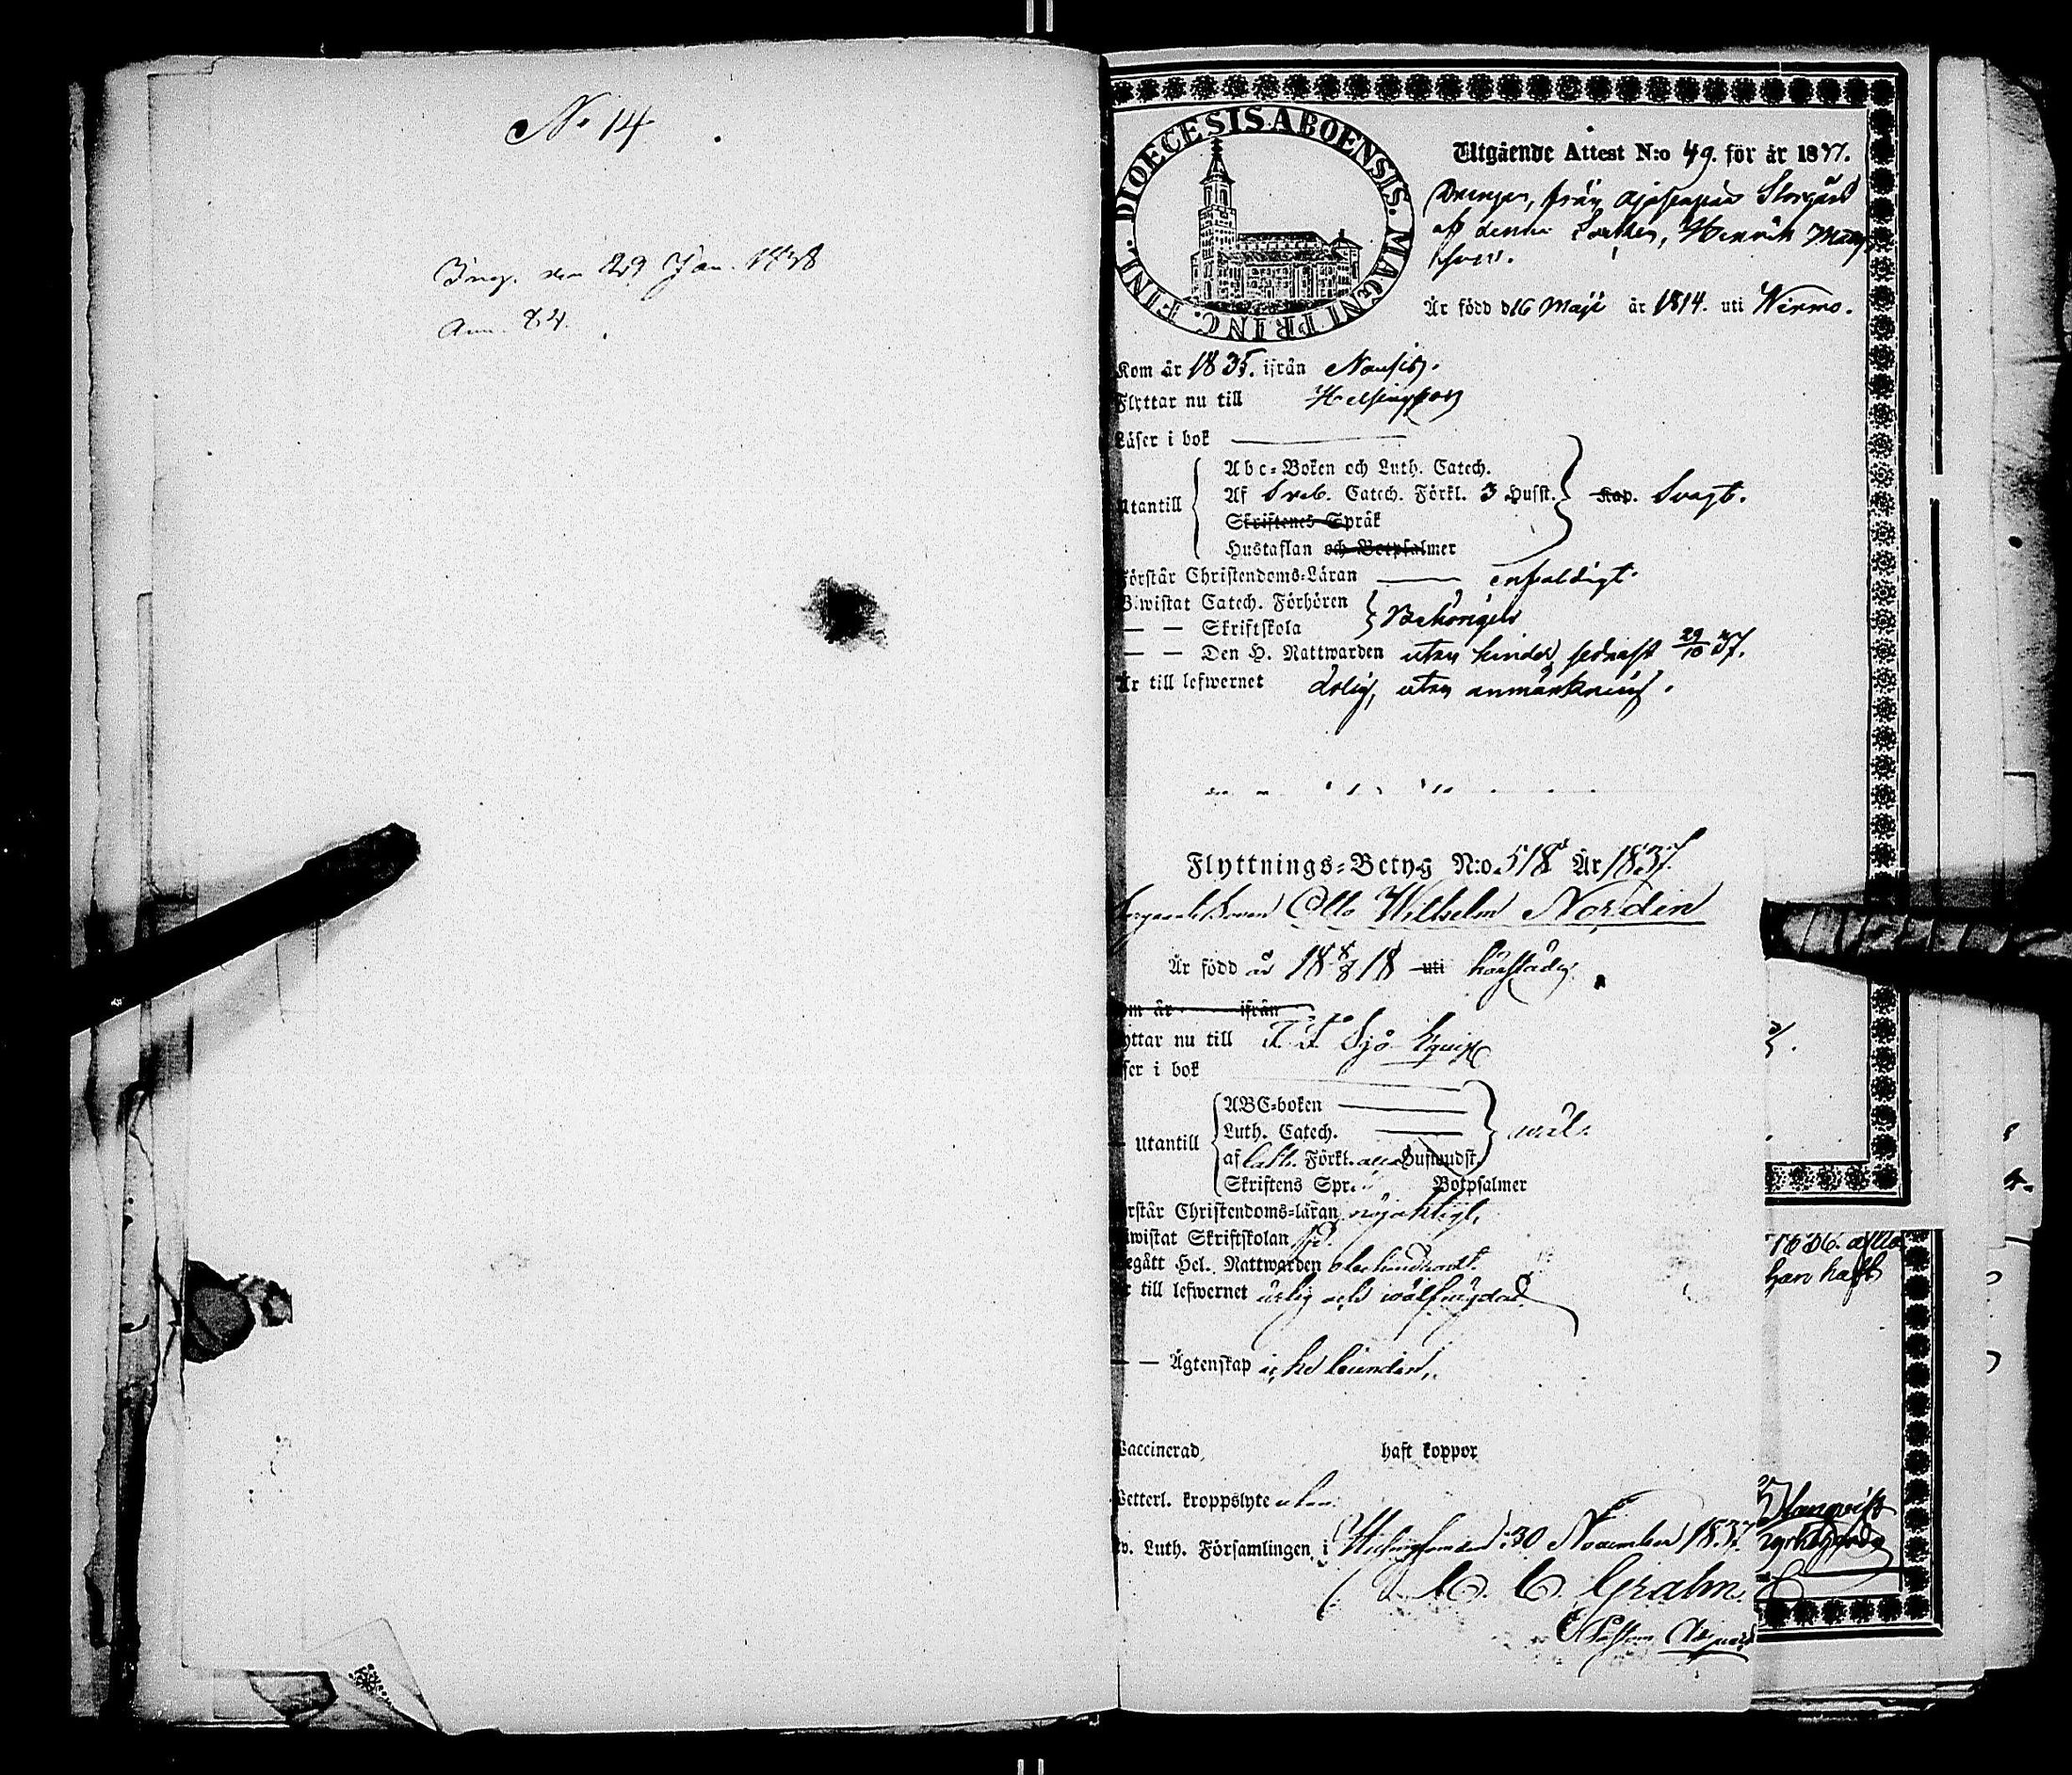 No 14.
Ing. den 29 Jan. 1838
Ann. 84.
DIOECESIS ABOENSIS. MAGNI PRINC. FINL.
Utgående Attest N:o 49. för år 1837.
Drengen, från Storgård
af denna Socken, Henrik
Är född d 16 Maji år 1814. uti Wirmo.
Kom år 1835. ifrån Nousis.
Flyttar nu till Helsingfors
Läser i bok
Utantill
Abc-Boken och Luth. Catech.
Af Sveb. Catech. Förkl. 3 Husst. Kap. Svagt.
Skriftenes Språk
Hustaflan och Botpsalmer
Förstår Christendoms-Läran enfaldigt.
Biwistat Catech. Förhören
— — Skriftskola Behörigen
— — Den H. Nattwarden utan hinder, sednast 29/10 37.
Är till lefwernet ärlig, utan anmärkning.
Flyttnings-Betyg N:o 518 År 1837.
Otto Wilhelm Nordin
Är född år 18 8/8 18 uti härstädes
om år ifrån
yttar nu till Sjö Equip.
ser i bok
— utantill
ABC-boken
Luth. Catech. wäl.
af Förkl. alla Hufwudst.
Skriftens Spr. Botpsalmer
rstår Christendoms-läran nöjaktigt,
iwistat Skriftskolan
egått Hel. Nattwarden obehindradt.
r till lefwernet ärlig och wälfrägdad
— — Ägtenskap icke bunden,
Vaccinerad haft koppor
Wetterl. kroppslyte utan
v. Luth. Församlingen i Helsingfors den 30 November 1837
Grahn
Pastors Adjunct
1836. alla
han haft